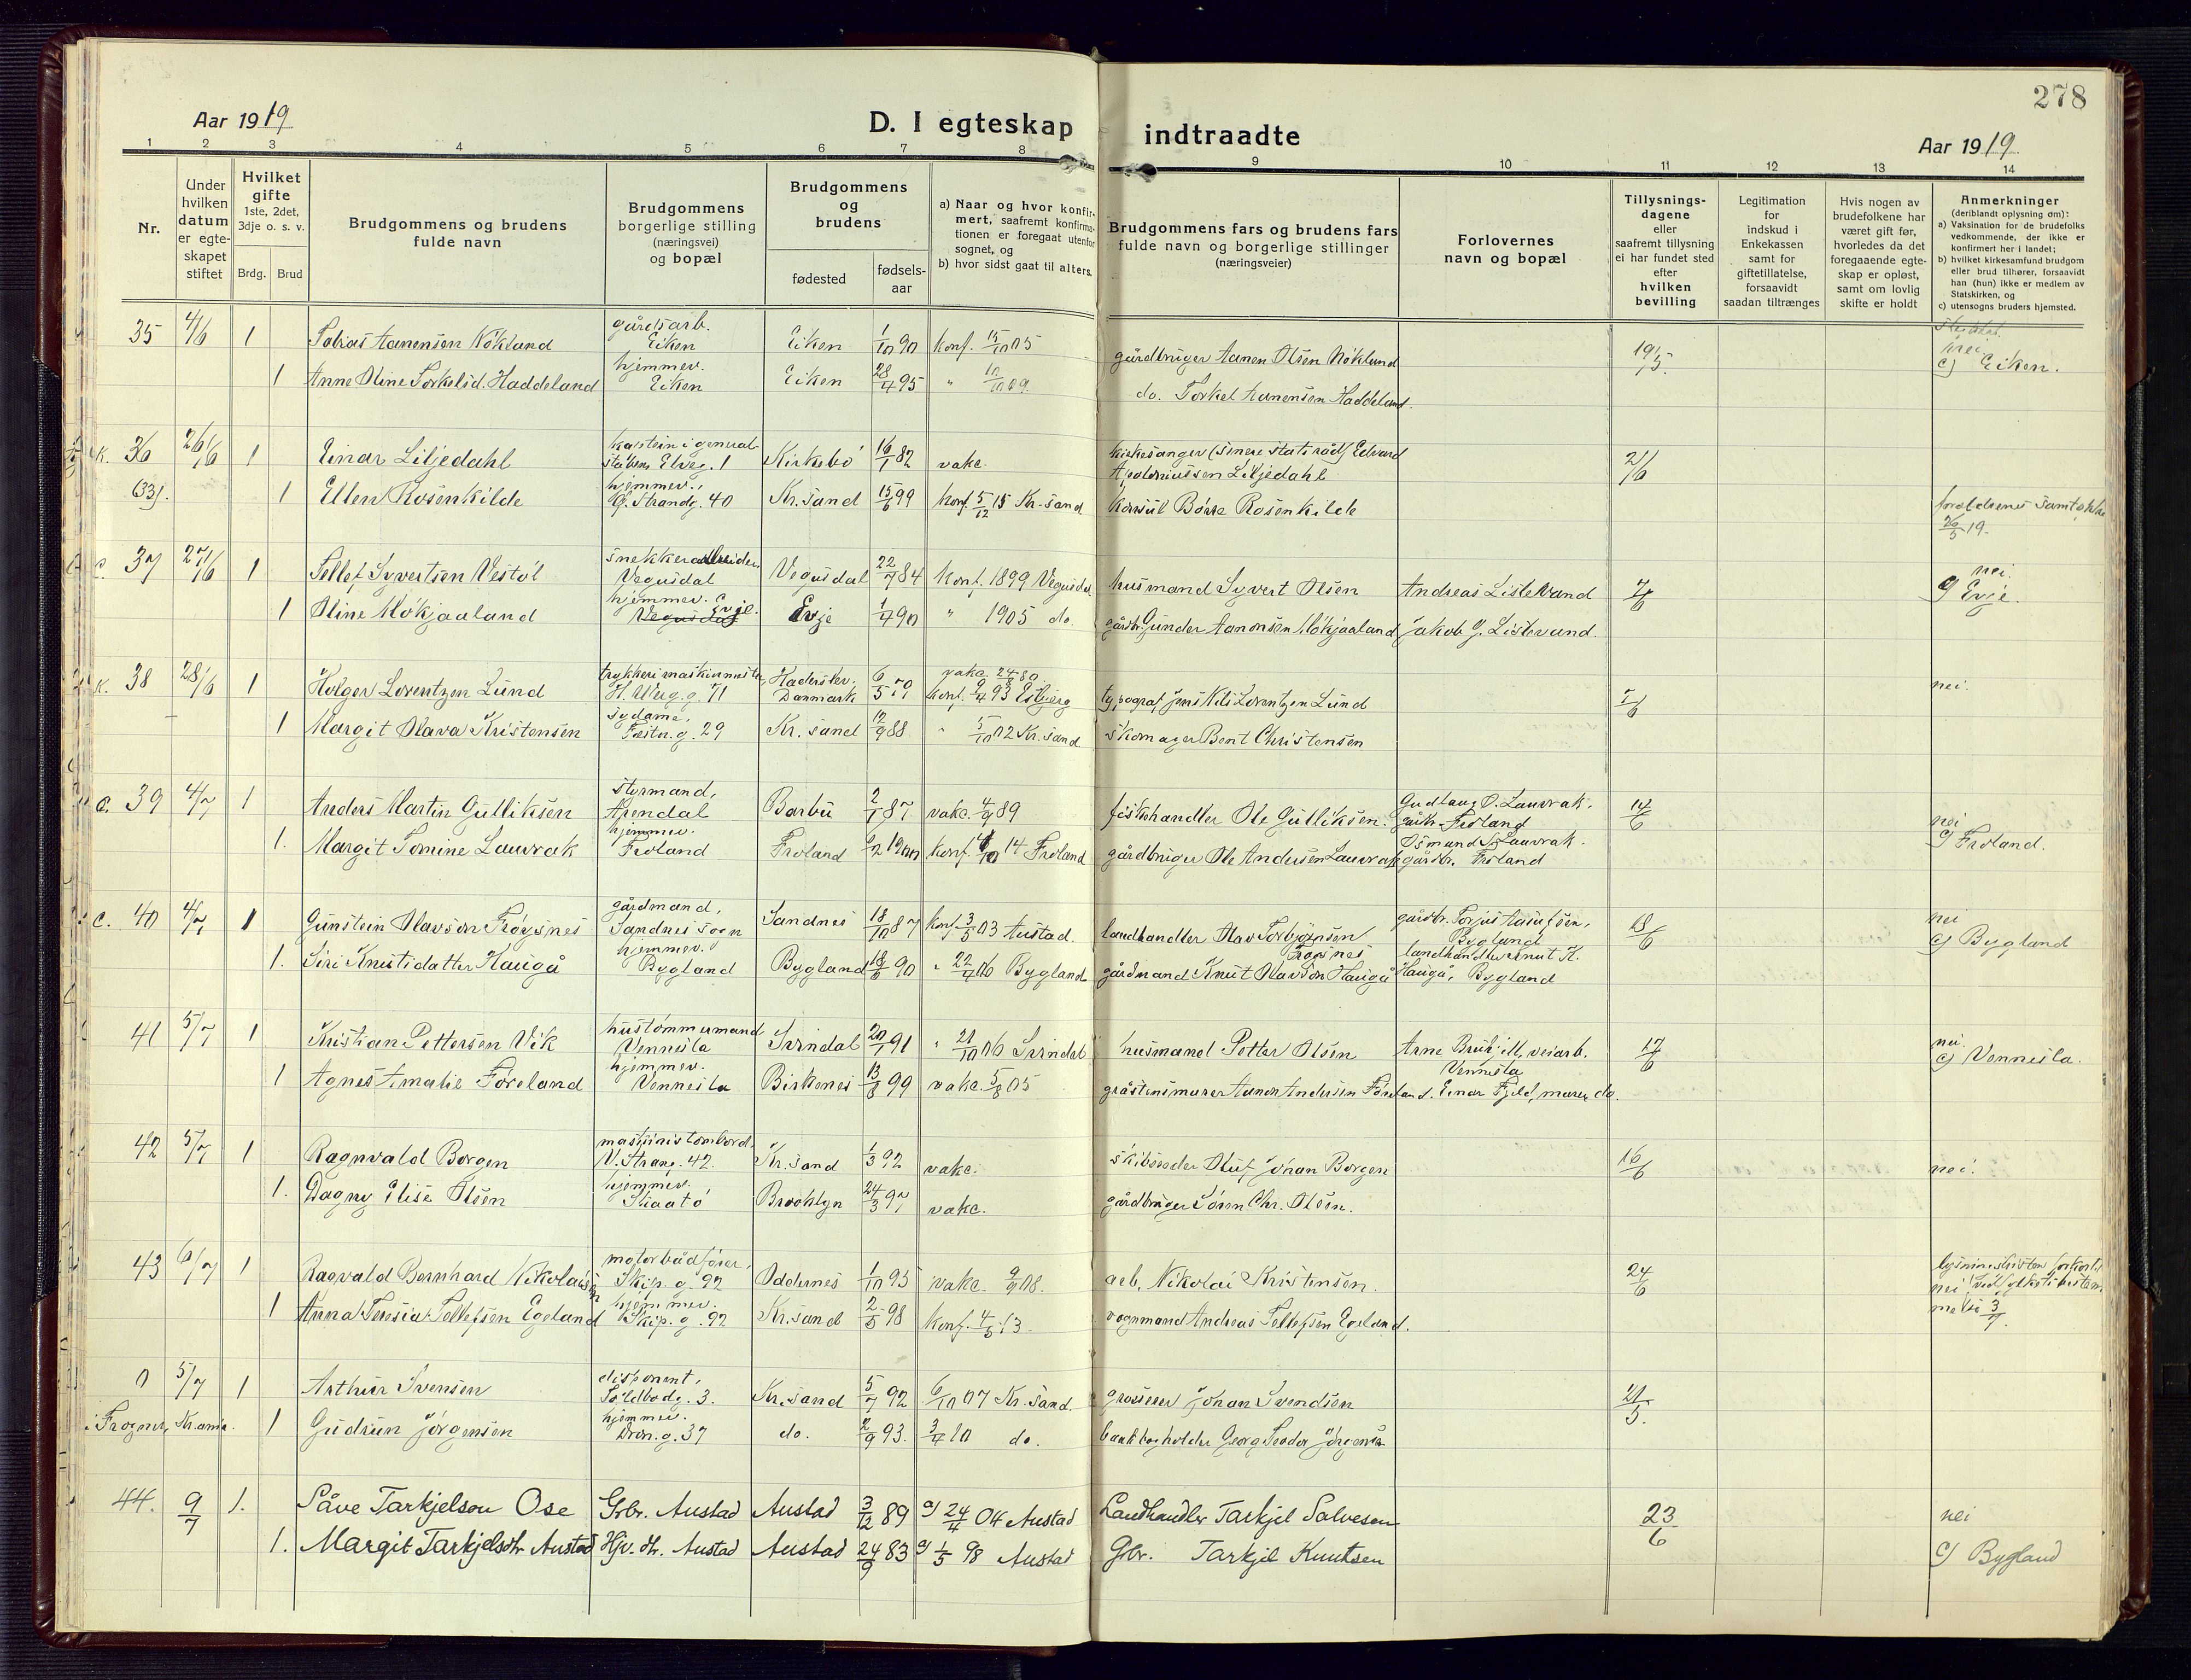 278
Aar 1919
D. I egteskap indtraadte
Aar 1919.
1 2 3 4 5 6 7 8 9 10 11 12 13 14
Nr.
Under hvilken datum er egteskapet stiftet
Hvilket gifte
1ste, 2det, 3dje o. s. v.
Brdg. Brud
Brudgommens og brudens fulde navn
Brudgommens borgerlige stilling (næringsvei) og bopæl
Brudgommens og brudens
fødested
fødselsaar
a) Naar og hvor konfirmert, saafremt konfirmationen er foregaat utenfor sognet, og
b) hvor sidst gaat til alters.
Brudgommens fars og brudens fars fulde navn og borgerlige stillinger (næringsveier)
Forlovernes navn og bopæl
Tillysningsdagene eller saafremt tillysning ei har fundet sted efter hvilken bevilling
Legitimation for indskud i Enkekassen samt for giftetillatelse, forsaavidt saadan tiltrænges
Hvis nogen av brudefolkene har været gift før, hvorledes da det foregaaende egteskap er opløst, samt om lovlig skifte er holdt
Anmerkninger
(deriblandt oplysning om):
a) Vaksination for de brudefolks vedkommende, der ikke er konfirmert her i landet;
b) hvilket kirkesamfund brudgom eller brud tilhører, forsaavidt han (hun) ikke er medlem av Statskirken, og
c) utensogns bruders hjemsted.
35 4/6 1 Tobias Aanensen Nökland gårdsarb. Eiken Eiken 1/10 90 konf. 15/10 05 gårdbruger Aanen Olsen Nöklund 19/5. nei c) Eiken.
1 Anne Oline Torkelsd. Haddeland hjemmev. Eiken Eiken 28/4 95 " 10/10 09. do. Torkel Aanensen Haddeland.
K. 36 26/6 1 Einar Liljedahl kaptein i generalstabens Elveg. 1 Kirkebö 16/1 82 vakc. kirkesanger (senere statsråd) Edvard Apolonius­sen Liljedahl 2/6
(33). 1 Ellen Rosenkilde hjemmev., Ø. Strandg. 40 Kr.sand 15/6 99 konf. 5/12 15 Kr.sand konsul Börre Rosenkilde forældrenes samtykke 26/5 19.
C. 37 27/6 1 Tellef Syvertsen Vestöl snekkerarbeider, Vegusdal Vegusdal 22/7 84 konf. 1899 Vegusdal husmand Syvert Olsen Andreas Listekvand 7/6 nei. c) Evje.
1 Oline Mökjaaland hjemmev. Evje. Evje 1/4 90 " 1905 do. gårdb. Gunder Aanonsen Mökjaaland Jakob G. Listevand.
K. 38 28/6 1 Holger Lorentzen Lund trykkerimaskinmester, H. Werg. g. 71 Haderslev. Danmark 6/5 79 vakc. 24/8 80. konf. 9/4 93 Esbjerg typograf Jens Nils Lorentzen Lund 5/6 nei.
1 Margit Olava Kristensen sydame, Festn. g. 29 Kr. sand 12/9 88 " 5/10 02 Kr. sand skomager Bent Christensen
C. 39 4/7 1 Anders Martin Gulliksen styrmand, Arendal Barbu 2/1 87 vakc. 4/9 89 fiskehandler Ole Gulliksen. Gudlaug O. Lauvrak, gårdb. Froland 14/6 nei c) Froland.
1. Margit Tomine Lauvrak hjemmev. Froland Froland 6/2 1900 konf. 4/10 14 Froland gårdbruger Ole Andersen Lauvrak Osmund S. Lauvrak. gårdbr. Froland
C. 40 4/7 1 Gunstein Olavson Fröysnes gårdmand, Sandnes sogn Sandnes 18/10 87 konf. 3/5 03 Austad. landhandler Olav Torbjörnsen Fröysnes gårdbr. Torjus Aasufsen, Bygland 18/6 nei c) Bygland
1. Siri Knutsdatter Haugå hjemmev. Bygland Bygland 18/6 90 " 22/4 06 Bygland gårdmand Knut Olavson Haugå landhandler Knut K. Haugå, Bygland
41 5/7 1 Kristian Pettersen Vik hustömmermand Vennesla Iveland 20/1 91 " 21/10 06 husmand Petter Olsen Arne Brukjell, veiarb. Vennesla 17/6 nei. c) Vennesla.
1 Agnes Amalie Föreland hjemmev. Vennesla Birkenes 13/8 99 vakc. 5/8 05 gråstensmurer Aanon Andersen Föreland. Einar Fjeld, murer do.
42 5/7 1 Ragnvald Borgen maskinist ombord. V. Strang. 42. Kr. sand 1/3 92 vakc. skibsreder Oluf Johan Borgen 16/6 nei.
1. Dagny Elise Olsen hjemmev. Brooklyn 24/3 97 vakc. gårdbruger Sören Chr. Olsen.
43 6/7 1 Ragvald Bernhard Nikolaisen motorbådförer, Skip. g. 92 Oddernes 1/10 95 vakc. 9/9 08. arb. Nikolai Kristensen. 24/6
1 Anna Teresia Tellefsen Egeland hjemmev. Skip. g. 92 Kr.sand 2/5 98 konf. 4/5 13. vognmand Andreas Tellefsen Egeland.
0 5/7 1 Arthur Svensen disponent, Toldbodg. 3. Kr.sand 5/7 92 6/10 07 Kr. sand. grosserer Johan Svendsen 21/5.
i Frogner, Kr.ania. 1 Gudrun Jörgensen hjemmev. Dron. g. 37 do. 2/9 93. 3/4 10 do. bankbogholder Georg Teodor Jörgensen
44. 9/7 1. Såve Tarkjelson Ose Grbr. Austad Austad 3/12 89 a) 24/4 04 Austad Landhandler Tarkjel Salvesen 23/6 nei
1. Margit Tarkjelsdtr Austad Hjv. dtr. Austad Austad 24/9 83 a) 1/5 98 Austad Gbr. Tarkjel Knutsen c) Bygland